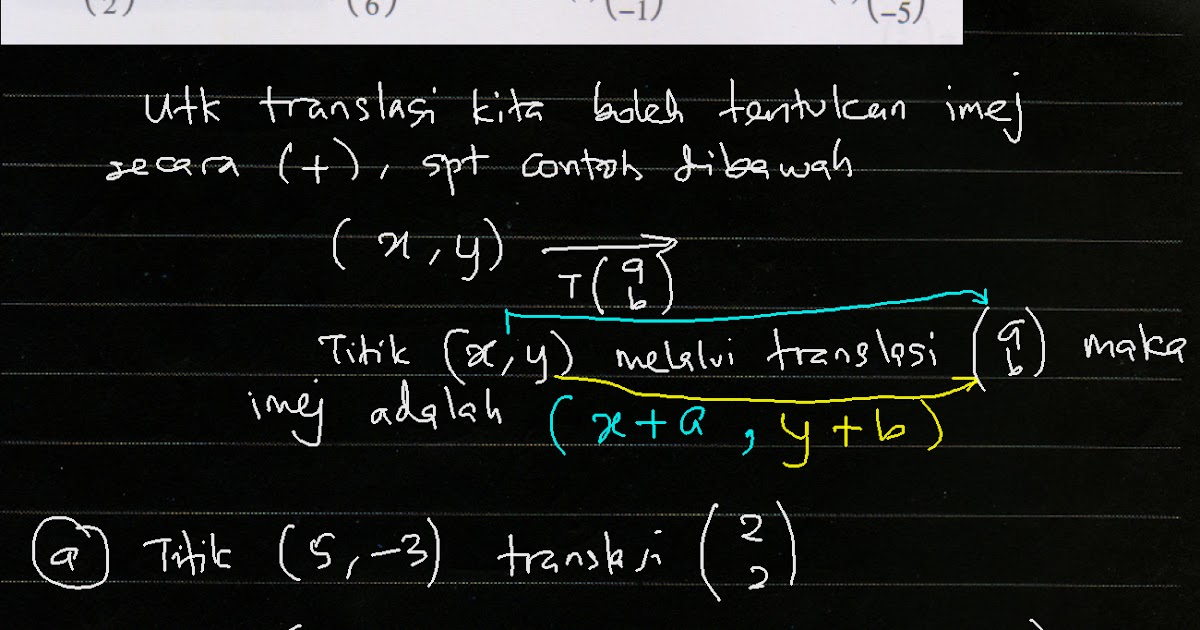 2) 6) (-1) (-5)
Utk translasi kita boleh tentukan imej
secara (+), spt contoh dibawah
(x, y) → T(a b)
Titik (x, y) melalui translasi (a b) maka
imej adalah (x+a, y+b)
(a) Titik (5, -3) translasi (2 2)